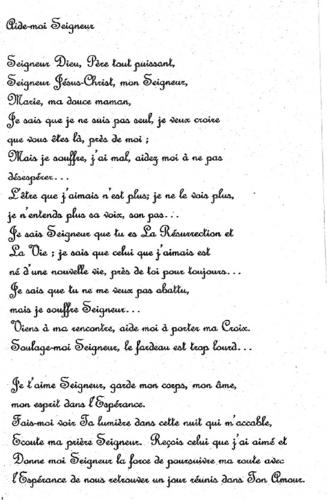 Aide-moi Seigneur
Seigneur Dieu, Père tout puissant,
Seigneur Jésus-Christ, mon Seigneur,
Marie, ma douce maman,
Je sais que je ne suis pas seul, je veux croire
que vous êtes là, près de moi ;
Mais je souffre, j'ai mal, aidez moi à ne pas
désespérer...
L'être que j'aimais n'est plus; je ne le vois plus,
je n'entends plus sa voix, son pas...
Je sais Seigneur que tu es La Résurrection et
La Vie ; je sais que celui que j'aimais est
né d'une nouvelle vie, près de toi pour toujours...
Je sais que tu ne me veux pas abattu,
mais je souffre Seigneur...
Viens à ma rencontre, aide moi à porter ma Croix.
Soulage-moi Seigneur, le fardeau est trop lourd...
Je t'aime Seigneur, garde mon corps, mon âme,
mon esprit dans l'Espérance.
Fais-moi voir Ta lumière dans cette nuit qui m'accable,
Ecoute ma prière Seigneur. Reçois celui que j'ai aimé et
Donne moi Seigneur la force de poursuivre ma route avec
l'Espérance de nous retrouver un jour réunis dans Ton Amour.